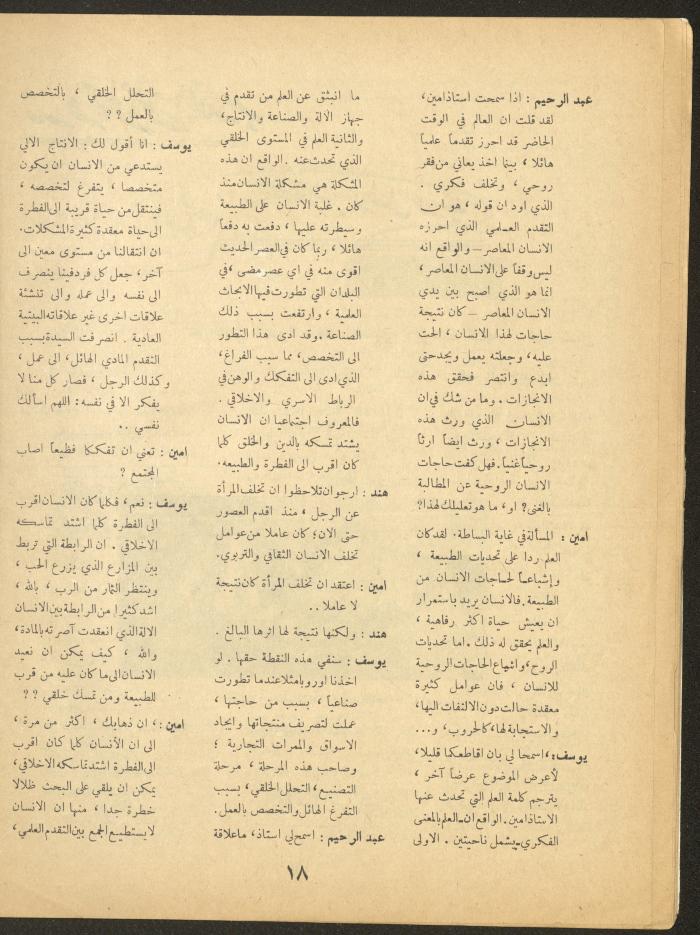 عبد الرحيم : اذا سمحت استاذ امين،
لقد قلت ان العالم في الوقت
الحاضر قد احرز تقدماً علمياً
هائلا ، بينما اخذ يعاني من فقر
روحي ، وتخلف فكري .
الذي اود ان قوله ، هو ان
التقدم العلمي الذي احرزه
الانسان المعاصر – والواقع انه
ليس وقفاً على الانسان المعاصر،
انما هو الذي اصبح بين يدي
الانسان المعاصر – كان نتيجة
حاجات لهذا الانسان ، الحت
عليه، وجعلته يعمل ويجد حتى
ابدع وانتصر فحقق هذه
الانجازات . وما من شك في ان
الانسان الذي ورث هذه
الانجازات ، ورث ايضاً ارثاً
روحياً غنياً. فهل كفت حاجات
الانسان الروحية عن المطالبة
بالغنى؟ او، ما هو تعليلك لهذا؟
امين : المسألة في غاية البساطة. لقد كان
العلم ردا على تحديات الطبيعة ،
وإشباعاً لحاجات الانسان من
الطبيعة. فالانسان يريد باستمرار
ان يعيش حياة اكثر رفاهية ،
والعلم يحقق له ذلك . اما تحديات
الروح، واشباع الحاجات الروحية
للانسان ، فان عوامل كثيرة
معقدة حالت دون الالتفات اليها،
والاستجابة لها، كالحروب، و...
يوسف:، اسمحا لي بان اقاطعكما قليلا،
لأعرض الموضوع عرضاً آخر ،
يترجم كلمة العلم التي تحدث عنها
الاستاذ امين . الواقع ان ـ العلم بالمعنى
الفكري ـ يشمل ناحيتين . الاولى
ما انبثق عن العلم من تقدم في
جهاز الالة والصناعة والانتاج،
والثانية العلم في المستوى الخلقي
الذي تحدث عنه . الواقع ان هذه
المشكلة هي مشكلة الانسان منذ
كان . غلبة الانسان على الطبيعة
وسيطرته عليها ، دفعت به دفعاً
هائلا ، ربما كان في العصر الحديث
اقوى منه في اي عصر مضى ، في
البلدان التي تطورت فيها الابحاث
العلمية ، وارتفعت بسبب ذلك
الصناعة . وقد ادى هذا التطور
الى التخصص ، مما سبب الفراغ،
الذي ادى الى التفكك والوهن في
الرباط الاسري والاخلاقي .
فالمعروف اجتماعيا ان الانسان
يشتد تمسكه بالدين والخلق كلما
كان اقرب الى الفطرة والطبيعه.
هند : ارجوان تلاحظوا ان تخلف المرأة
عن الرجل ، منذ اقدم العصور
حتى الان؛ كان عاملا من عوامل
تخلف الانسان الثقافي والتربوي.
امين : اعتقد ان تخلف المرأة كان نتيجة
لا عاملا . .
هند : ولكنها نتيجة لها اثرها البالغ .
يوسف : سنفي هذه النقطة حقها . لو
اخذنا اوروبا مثلا عندما تطورت
صناعياً ، بسبب من حاجتها ،
عملت لتصريف منتجاتها وايجاد
الاسواق والممرات التجارية ؛
وصاحب هذه المرحلة ، مرحلة
التصنيع ، التحلل الخلقي، بسبب
التفرغ الهائل والتخصص بالعمل.
عبد الرحيم : اسمح لي استاذ، ما علاقة
التحلل الخلقي ، بالتخصص
بالعمل ؟ ؟
يوسف : انا أقول لك : الانتاج الالي
يستدعي من الانسان ان يكون
متخصصا ، يتفرغ لتخصصه ،
فينتقل من حياة قريبة الى الفطرة
الى حياة معقدة كثيرة المشكلات.
ان انتقالنا من مستوى معين الى
آخر، جعل كل فرد فينا ينصرف
الى نفسه والى عمله والى تنشئة
علاقات اخرى غير علاقاته البيتية
العادية . انصرفت السيدة بسبب
التقدم المادي الهائل، الى عمل ،
وكذلك الرجل ، فصار كل منا لا
يفكر الا في نفسه : اللهم اسألك
نفسي . .
امين : تعني ان تفككا فظيعاً اصاب
المجتمع ؟
يوسف : نعم، فكلما كان الانسان اقرب
الى الفطرة كلما اشتد تماسكه
الاخلاقي . ان الرابطة التي تربط
بين المزارع الذي يزرع الحب ،
وينتظر الثمار من الرب ، بالله ،
اشد كثيرا من الرابطة بين الانسان
الالة الذي انعقدت آصرته بالمادة،
والله ، كيف يمكن ان نعيد
الانسان الى ما كان عليه من قرب
للطبيعة ومن تمسك خلقي ؟ ؟
امين :، ان ذهابك ، اكثر من مرة ،
الى ان الأنسان كلما كان اقرب
الى الفطرة اشتد تماسكه الاخلاقي،
يمكن ان يلقي على البحث ظلالا
خطرة جدا ، منها ان الانسان
لا يستطيع الجمع بين التقدم العلمي،
١٨